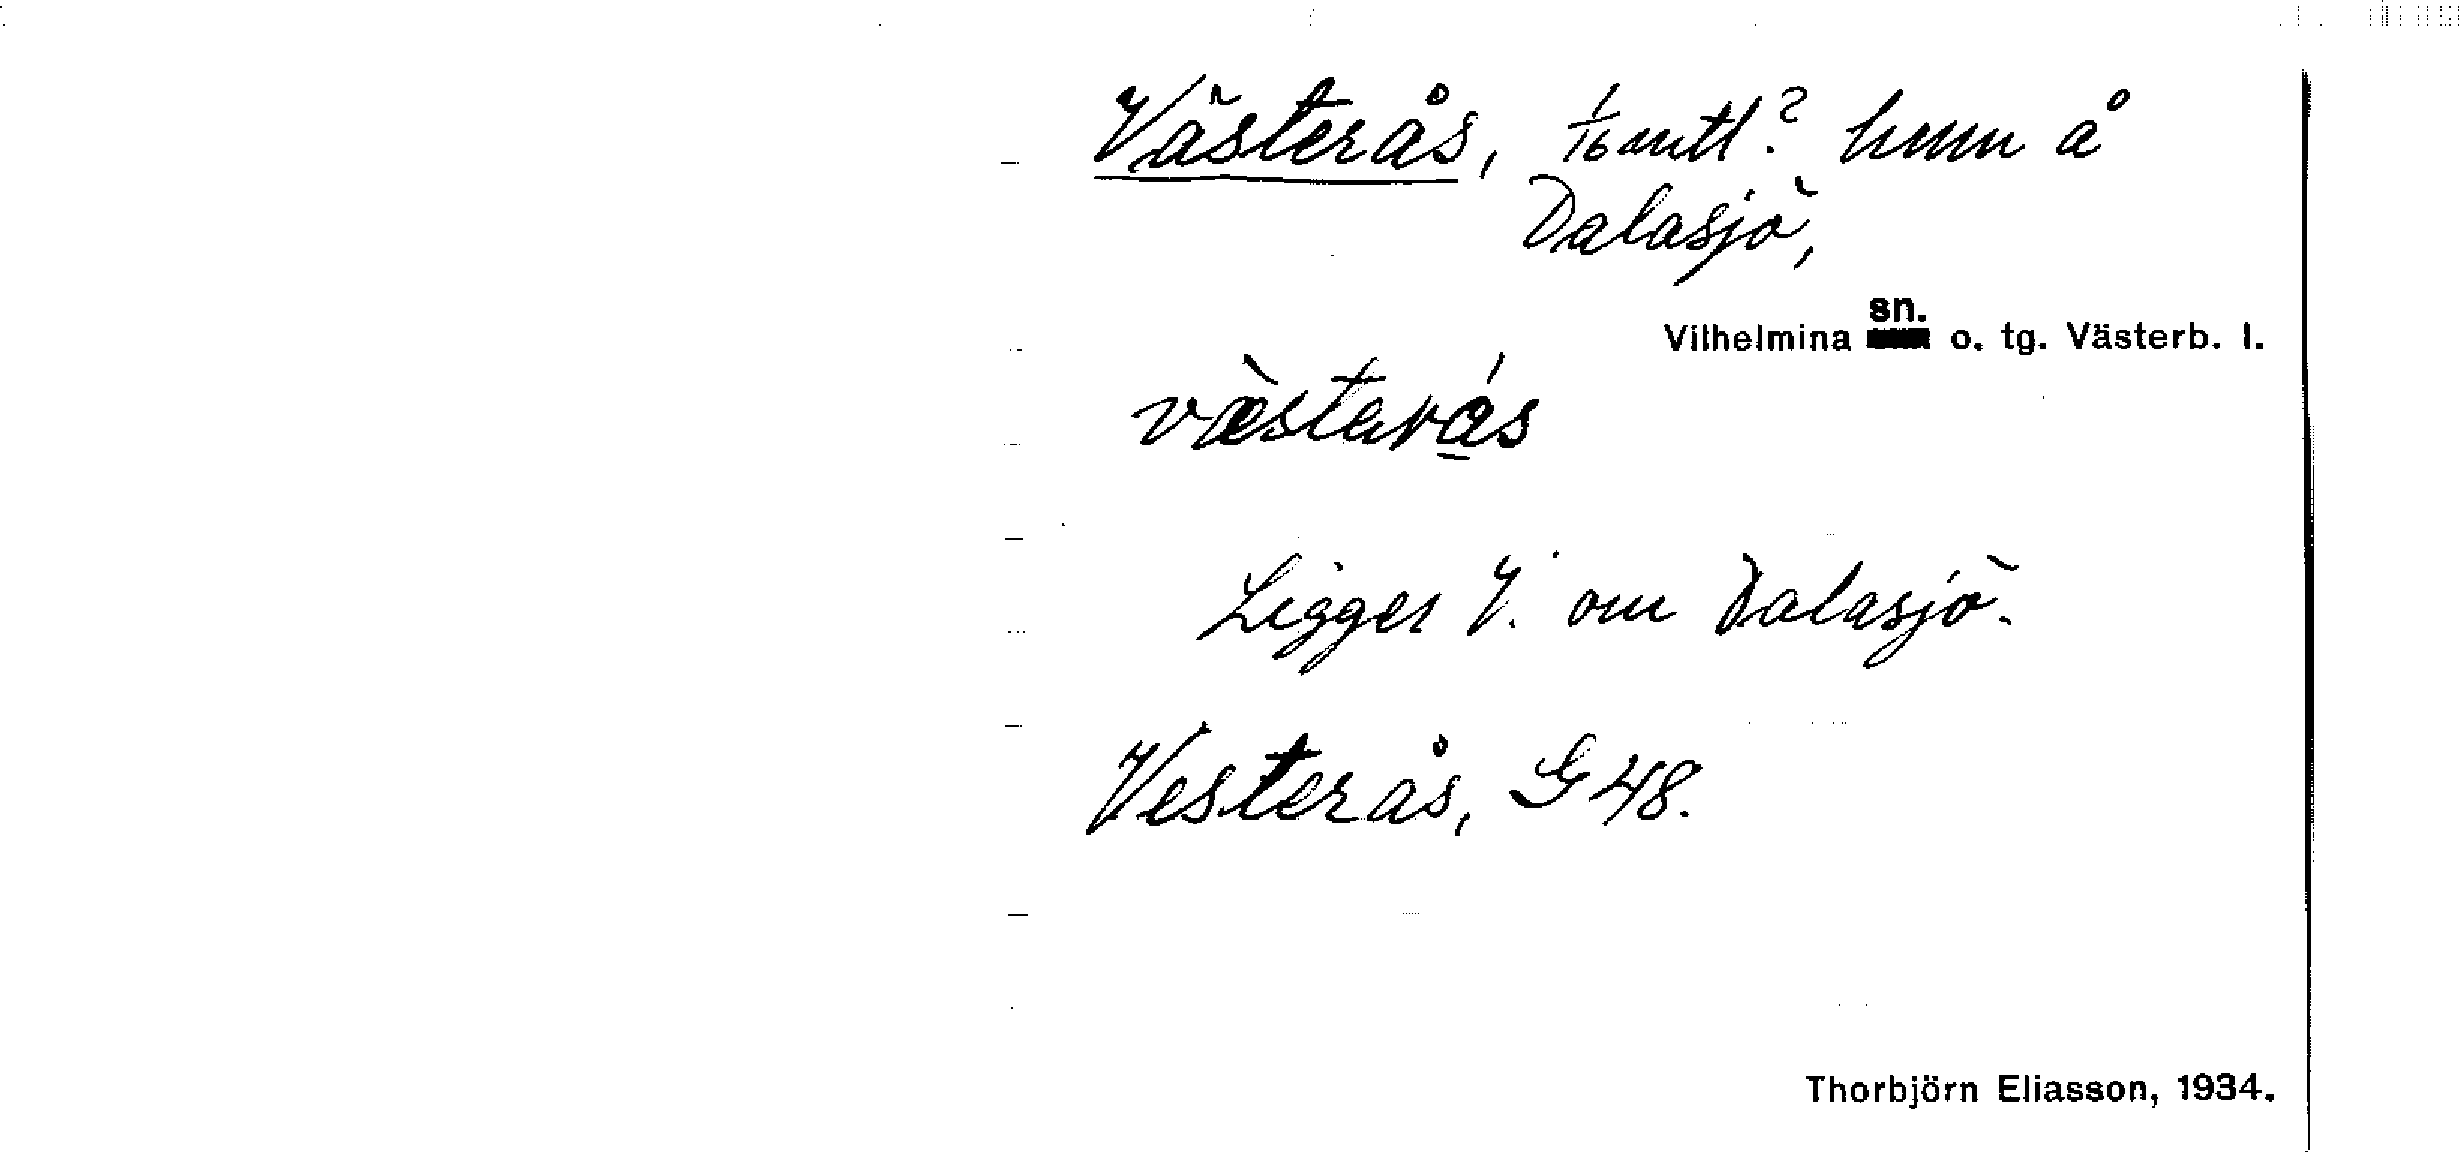 Västerås, 1/16 mtl? hmn å
Dalasjö,
Vilhelmina sn. o. tg. Västerb. l.
væ̀stərá̱s
Ligger V. om Dalasjö.
Vesterås, G 48.
Thorbjörn Eliasson, 1934.